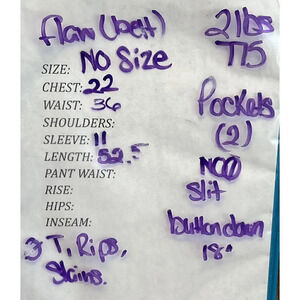 Flaw (belt)
No Size
SIZE:
CHEST: 22
WAIST: 36
SHOULDERS:
SLEEVE: 11
LENGTH: 52.5
PANT WAIST:
RISE:
HIPS:
INSEAM:
3 T, Rips,
Stains.
2 lbs
T15
Pockets
(2)
NO
Slit
button down
18"